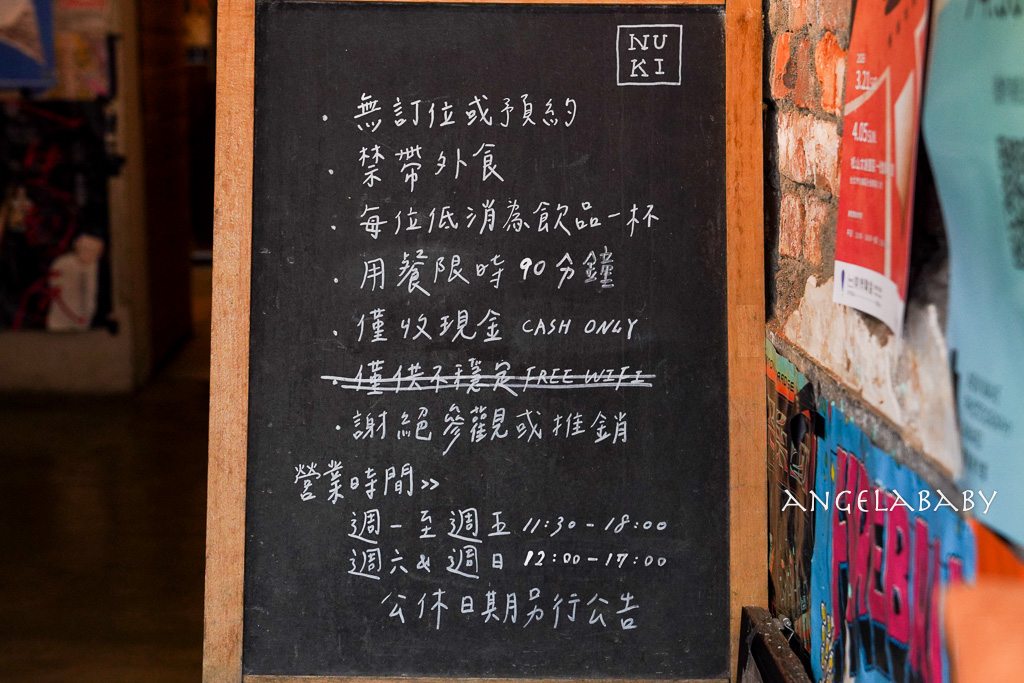 NU
KI
· 無訂位或預約
· 禁帶外食
· 每位低消為飲品一杯
· 用餐限時 90 分鐘
· 僅收現金 CASH ONLY
· 僅供不穩定 FREE WIFI
· 謝絕參觀或推銷
營業時間>>
週一至週五 11:30-18:00
週六 & 週日 12:00-17:00
公休日期另行公告
3.21
4.05
ANGELABABY